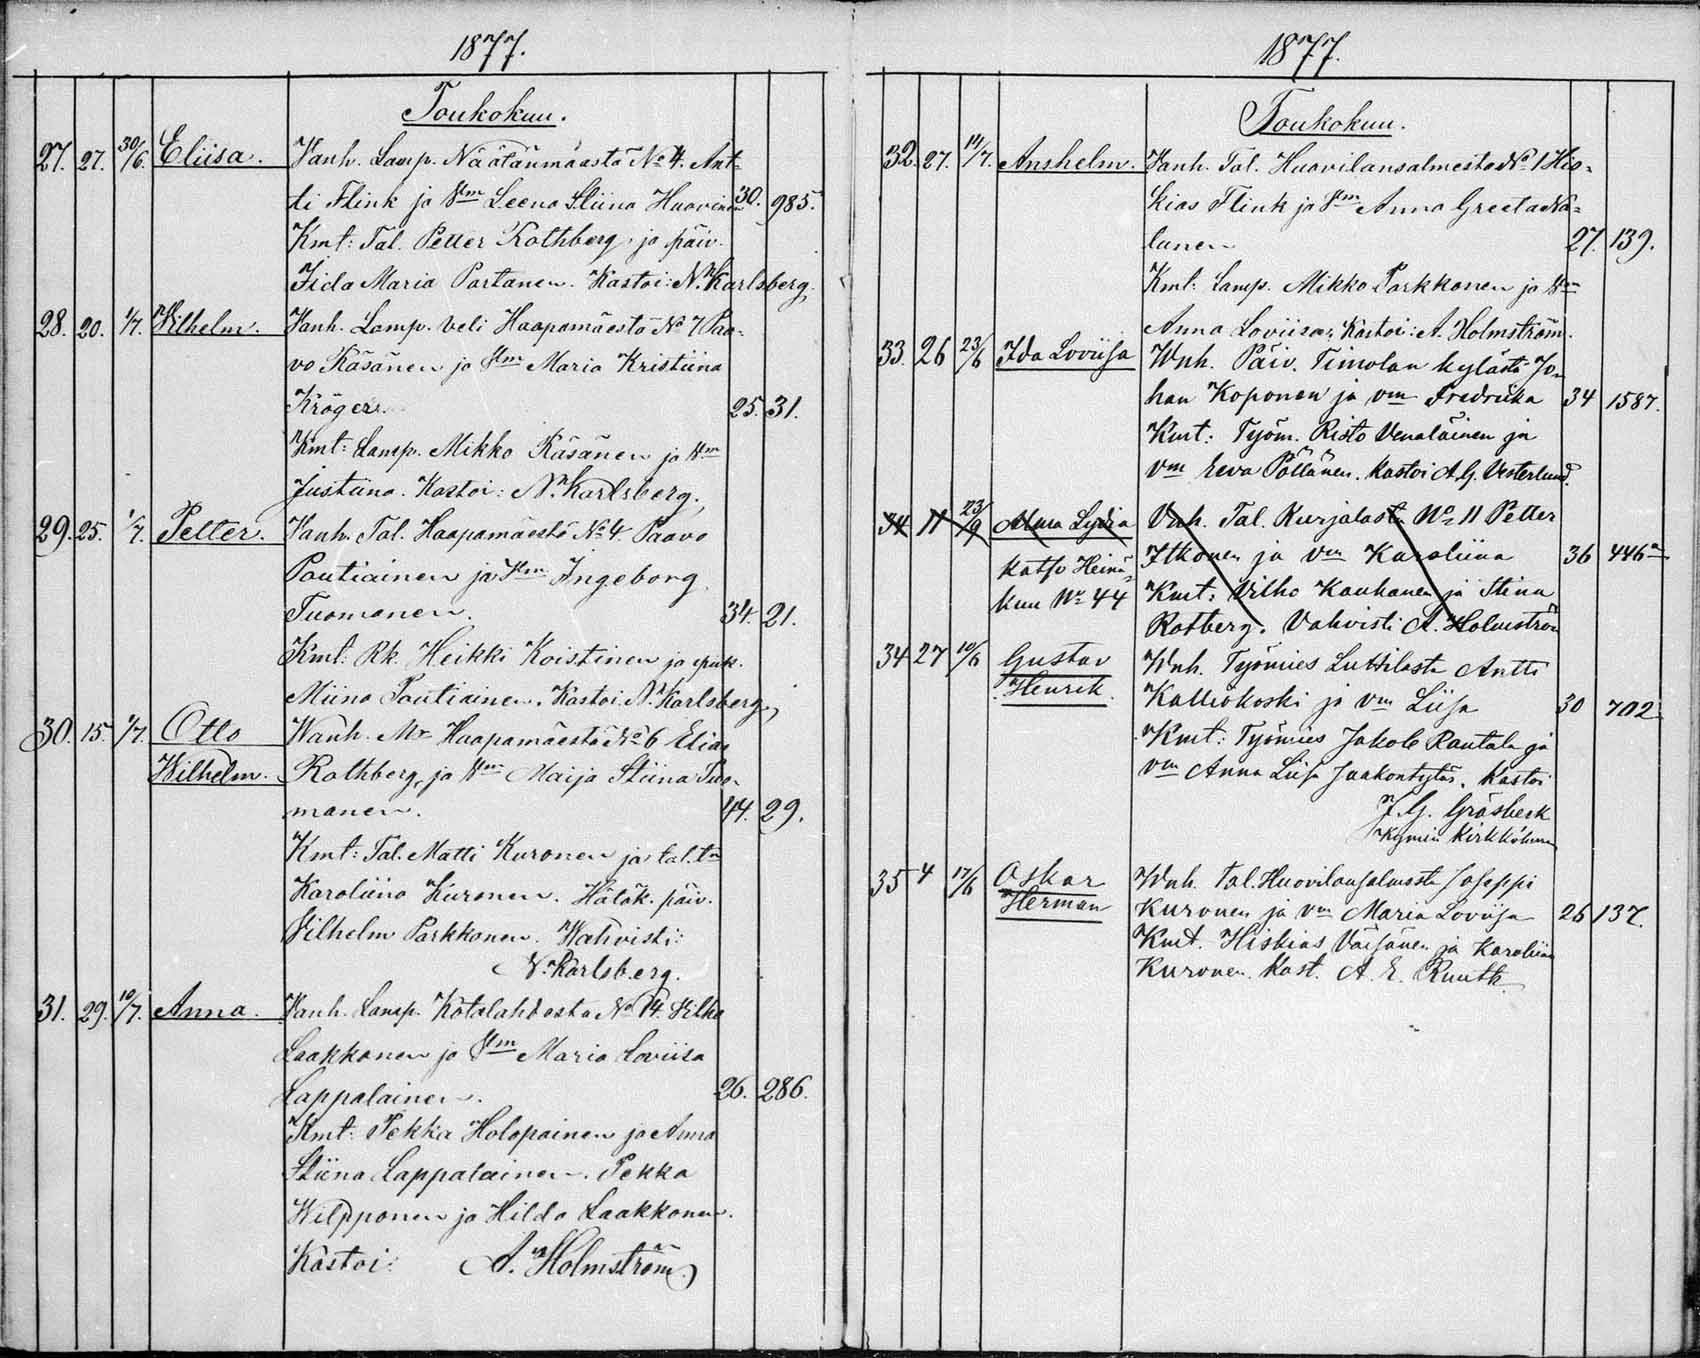 1877.
Toukokuu.
27. 27. 30/6. Eliisa. Vanh. Lamp. Näätänmäestä No 4. Ant-
ti Flink ja Vm Leena Stiina Huovinen 30. 985.
Kmt: Tal. Petter Rothberg ja päiv.
Iida Maria Partanen. Kastoi: N. Karlsberg.
28. 20. 1/7. Vilhelm. Vanh. Lamp. veli Haapamäestä No 7 Paa-
vo Räsänen ja Vm Maria Kristiina
Kröger. 25. 31.
Kmt: Lamp. Mikko Räsänen ja Vm
Justiina. Kastoi: N. Karlsberg.
29. 25. 1/7. Petter. Vanh. Tal. Haapamäestä No 4. Paavo
Poutiainen ja Vm Ingeborg
Tuomanen. 34. 21.
Kmt: Rk. Heikki Koistinen ja piik.
Miina Poutiainen. Kastoi. N. Karlsberg.
30. 15. 1/7. Otto Wanh. Mr Haapamäestä No 6 Elias
Wilhelm. Rothberg, ja Vm Maija Stiina Tuo-
manen. 44. 29.
Kmt: Tal. Matti Kuronen ja tal. tr
Karoliina Kuronen. Hätäk. päiv.
Vilhelm Parkkonen. Wahvisti:
N. Karlsberg.
31. 29. 10/7. Anna. Vanh. Lamp. Kotalahdesta No 14. Vilho
Laakkonen ja Vm Maria Loviisa
Lappalainen. 26. 286.
Kmt: Pekka Holopainen ja Anna
Stiina Lappalainen. Pekka
Wilpponen ja Hilda Laakkonen.
Kastoi: A. Holmström
1877.
Toukokuu.
32. 27. 11/7. Anshelm. Vanh. Tal. Huovilansalmesta No 1 His-
kias Flink ja Vm Anna Greeta
lunen 27. 139.
Kmt: Lamp. Mikko Parkkonen ja Vm
Anna Loviisa. Kastoi: A. Holmström.
33. 26 23/6 Ida Loviisa Wnh. Päiv. Timolan kylästä Jo-
han Koponen ja vm Fredrika 34 1587.
Kmt: Työm. Risto Venäläinen ja
vm Eeva Pöllänen. Kastoi A. G. Vesterlund.
34 11 23/9 Alma Lydia Vnh. Tal. Kurjalasta No 11 Petter
katso Heinä- Itkonen ja vm Karoliina 36 446
kuu No 44 Kmt: Vilho Kauhanen ja Stina
Rotberg. Vahvisti A. Holmström
34 27 10/6 Gustav Wnh. Työmies Luttilasta Antti
Henrik. Kalliokoski ja vm Liisa 30 702
Kmt: Työmies Jakob Rautala ja
vm Anna Liisa Jaakontytär. Kastoi
J. G. Gråsbeck
Kymin Kirkkoherra
35 4 17/6 Oskar Wnh. Tal. Huovilansalmesta Joseppi
Herman Kuronen ja vm Maria Loviisa 26 137.
Kmt. Hiskias Väisänen ja Karoliina
Kuronen. Kast. A. E. Ruuth.